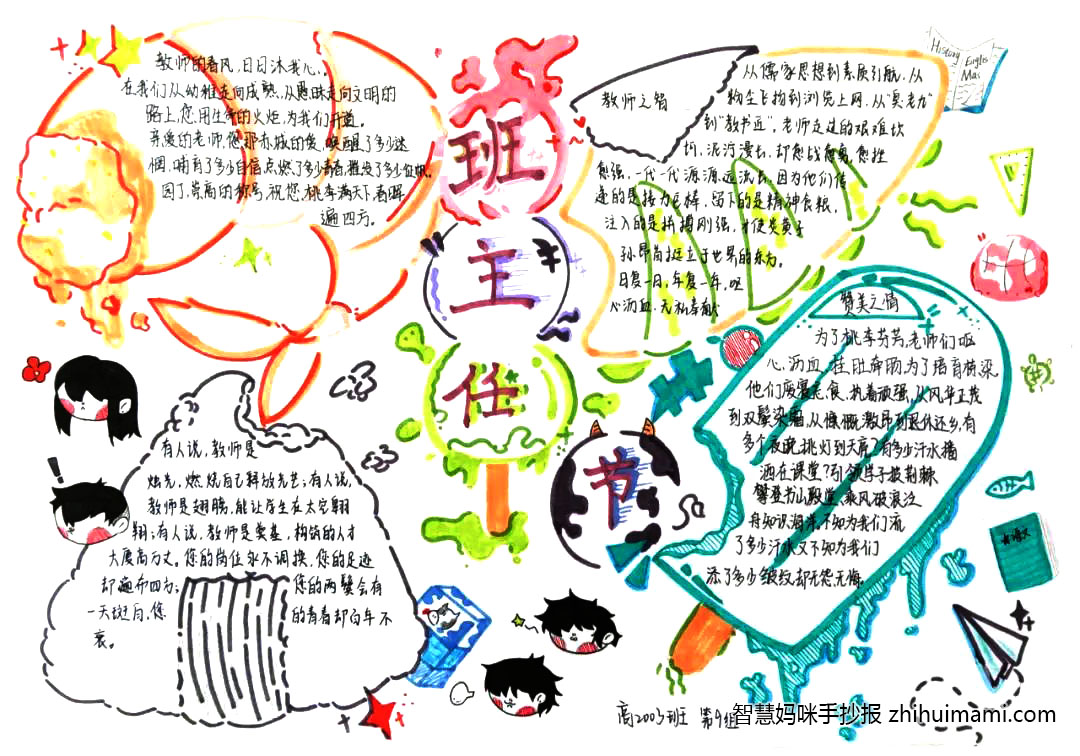 教师的春风,日日沐我心,
在我们从幼稚走向成熟,从愚昧走向文明的
路上,您用生命的火炬,为我们开道。
亲爱的老师,您那赤诚的爱,唤醒了多少迷
惘,哺育了多少自信,点燃了多少青春,催发了多少
园丁,崇高的称号,祝您,桃李满天下,春晖
遍四方。
班
主
任
节
教师之智
从儒家思想到素质引航,从
粉尘飞扬到浏览上网,从“臭老九”
到“教书匠”,老师走过的艰难坎
坷,泥泞漫长,却您战愈勇,愈挫
愈强,一代一代源源远流长,因为他们传
递的是接力巨棒,留下的是精神食粮,
注入的是拼搏刚强,才使炎黄子
孙昂首挺立于世界的东方。
日复一日,年复一年,呕
心沥血,无私奉献
History
English
赞美之情
为了桃李芬芳,老师们呕
心沥血,牵肚奔肠,为了培育栋梁
他们废寝忘食,执着顽强,从风华正茂
到双鬓染霜,从慷慨激昂到退休还乡,有
多个夜晚挑灯到天亮?有多少汗水播
洒在课堂?引领学子披荆棘
攀登书山殿堂,乘风破浪泛
舟知识海洋,不知为我们流
了多少汗水又不知为我们
添了多少皱纹却无怨无悔
有人说,教师是
烛光,燃烧自己释放光芒;有人说,
教师是翅膀,能让学生在太空翱
翔;有人说,教师是奠基,构筑的人才
大厦高万丈。您的岗位永不调换,您的足迹
却遍布四方;您的两鬓会有
一天斑白,您的青春却百年不
衰。
语文
高2003班 第9组
智慧妈咪手抄报 zhihuimami.com